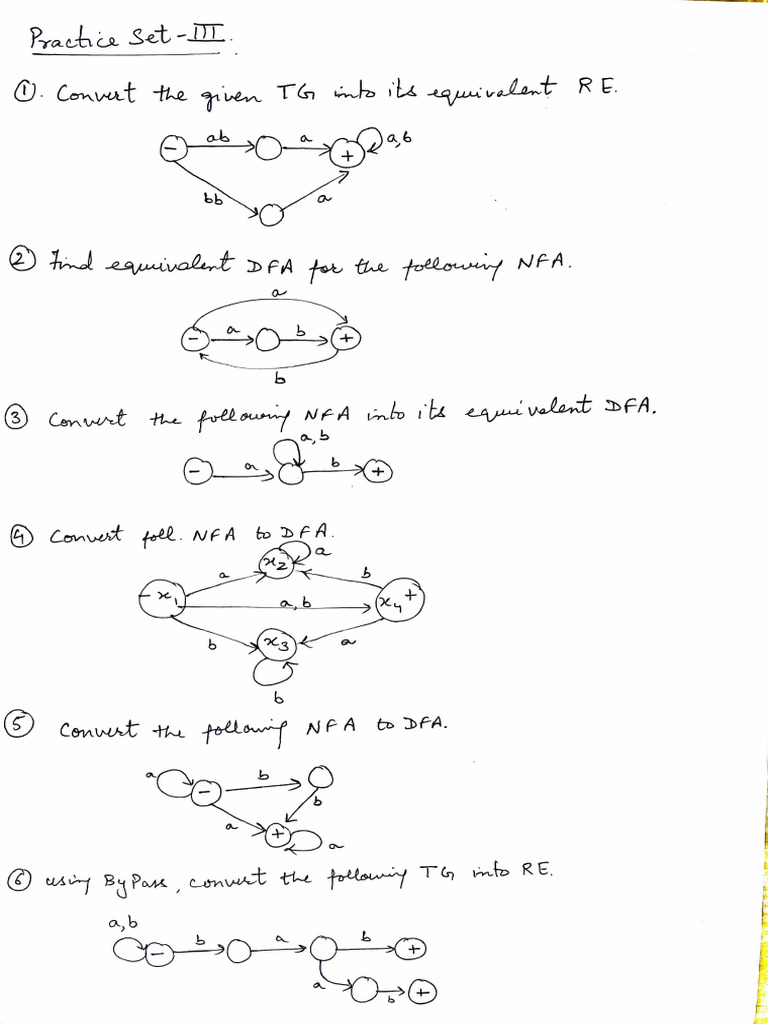 Practice Set - III.
①. Convert the given TG into its equivalent RE.
- ab a + a,b
bb a
② Find equivalent DFA for the following NFA.
a
- a b +
b
③ Convert the following NFA into its equivalent DFA.
a,b
- a b +
④ Convert foll. NFA to DFA.
x2 a
a b
- x1 a,b x4 +
b x3 a
b
⑤ Convert the following NFA to DFA.
a - b
b
a + a
⑥ using ByPass, convert the following TG into RE.
a,b
- b a b +
a b +